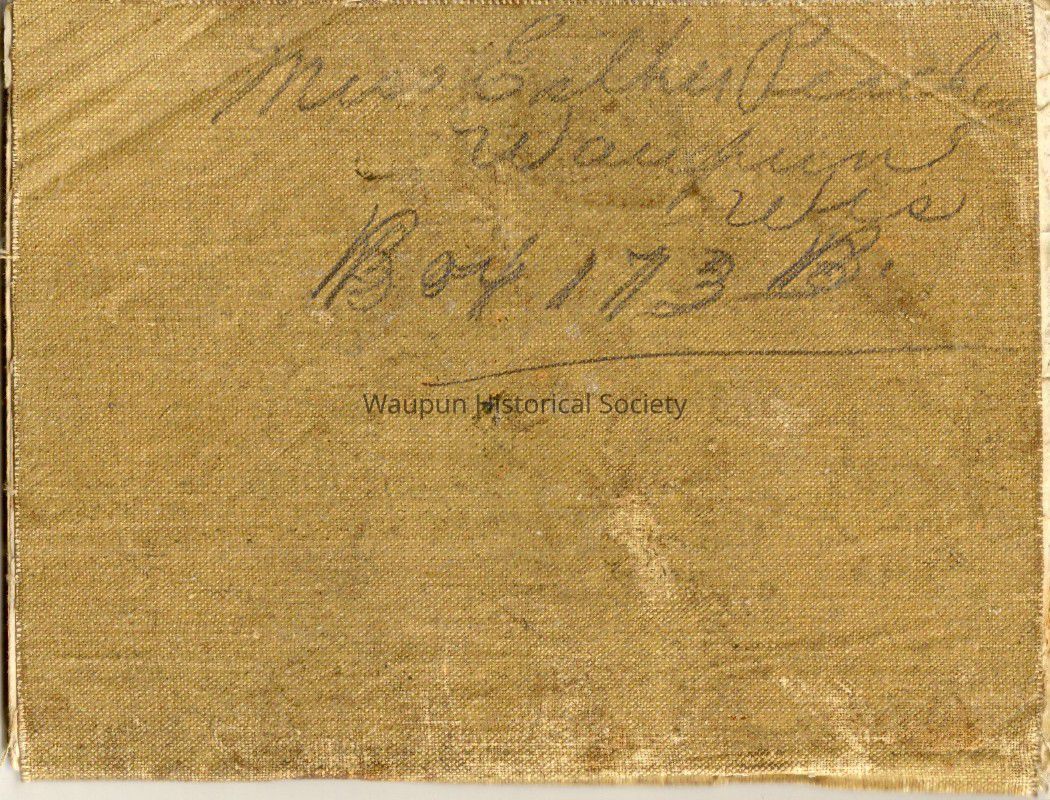 Miss Esther
Waupun
Wis
Box 173 B.
Waupun Historical Society